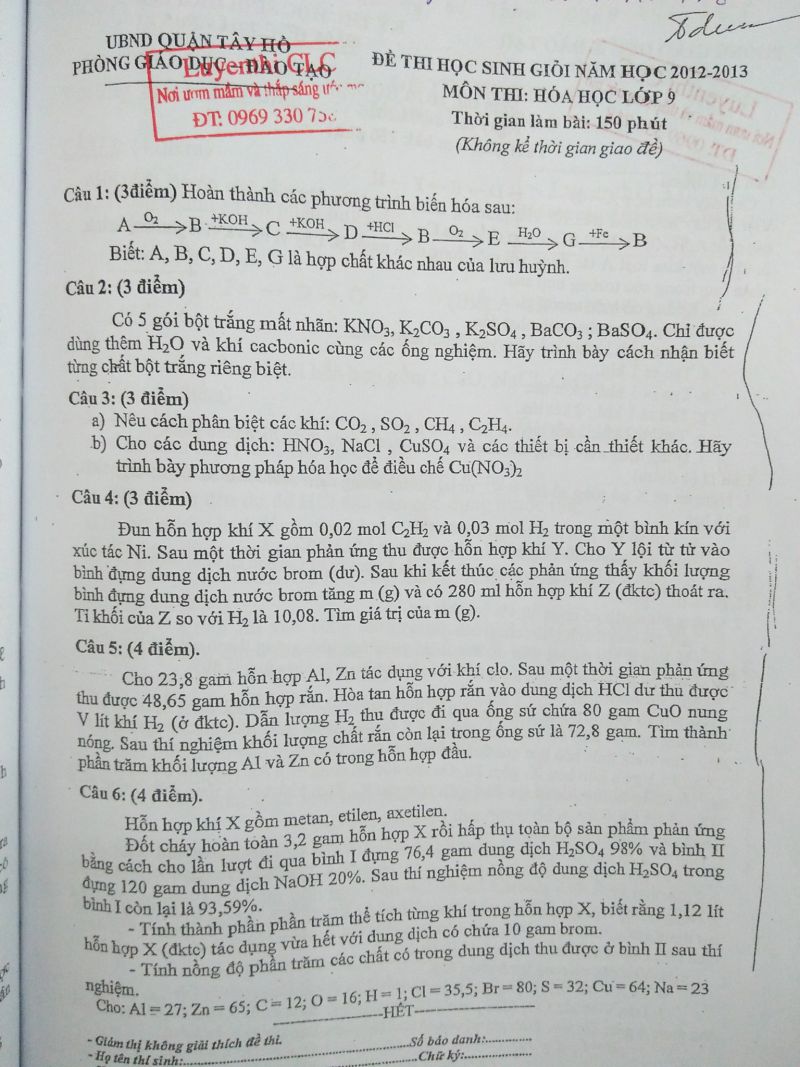 UBND QUẬN TÂY HỒ
PHÒNG GIÁO DỤC - ĐÀO TẠO
Luyenthi CLC
Nơi ươm mầm và thắp sáng
ĐT: 0969 330
ĐỀ THI HỌC SINH GIỎI NĂM HỌC 2012-2013
MÔN THI: HÓA HỌC LỚP 9
Thời gian làm bài: 150 phút
(Không kể thời gian giao đề)
Câu 1: (3điểm) Hoàn thành các phương trình biến hóa sau:
A —O₂→ B —+KOH→ C —+KOH→ D —+HCl→ B —O₂→ E —H₂O→ G —+Fe→ B
Biết: A, B, C, D, E, G là hợp chất khác nhau của lưu huỳnh.
Câu 2: (3 điểm)
Có 5 gói bột trắng mất nhãn: KNO₃, K₂CO₃ , K₂SO₄ , BaCO₃ ; BaSO₄. Chỉ được
dùng thêm H₂O và khí cacbonic cùng các ống nghiệm. Hãy trình bày cách nhận biết
từng chất bột trắng riêng biệt.
Câu 3: (3 điểm)
a) Nêu cách phân biệt các khí: CO₂ , SO₂ , CH₄ , C₂H₄.
b) Cho các dung dịch: HNO₃, NaCl , CuSO₄ và các thiết bị cần thiết khác. Hãy
trình bày phương pháp hóa học để điều chế Cu(NO₃)₂
Câu 4: (3 điểm)
Đun hỗn hợp khí X gồm 0,02 mol C₂H₂ và 0,03 mol H₂ trong một bình kín với
xúc tác Ni. Sau một thời gian phản ứng thu được hỗn hợp khí Y. Cho Y lội từ từ vào
bình đựng dung dịch nước brom (dư). Sau khi kết thúc các phản ứng thấy khối lượng
bình đựng dung dịch nước brom tăng m (g) và có 280 ml hỗn hợp khí Z (đktc) thoát ra.
Tỉ khối của Z so với H₂ là 10,08. Tìm giá trị của m (g).
Câu 5: (4 điểm).
Cho 23,8 gam hỗn hợp Al, Zn tác dụng với khí clo. Sau một thời gian phản ứng
thu được 48,65 gam hỗn hợp rắn. Hòa tan hỗn hợp rắn vào dung dịch HCl dư thu được
V lít khí H₂ (ở đktc). Dẫn lượng H₂ thu được đi qua ống sứ chứa 80 gam CuO nung
nóng. Sau thí nghiệm khối lượng chất rắn còn lại trong ống sứ là 72,8 gam. Tìm thành
phần trăm khối lượng Al và Zn có trong hỗn hợp đầu.
Câu 6: (4 điểm).
Hỗn hợp khí X gồm metan, etilen, axetilen.
Đốt cháy hoàn toàn 3,2 gam hỗn hợp X rồi hấp thụ toàn bộ sản phẩm phản ứng
bằng cách cho lần lượt đi qua bình I đựng 76,4 gam dung dịch H₂SO₄ 98% và bình II
đựng 120 gam dung dịch NaOH 20%. Sau thí nghiệm nồng độ dung dịch H₂SO₄ trong
bình I còn lại là 93,59%.
- Tính thành phần phần trăm thể tích từng khí trong hỗn hợp X, biết rằng 1,12 lít
hỗn hợp X (đktc) tác dụng vừa hết với dung dịch có chứa 10 gam brom.
- Tính nồng độ phần trăm các chất có trong dung dịch thu được ở bình II sau thí
nghiệm.
Cho: Al = 27; Zn = 65; C = 12; O = 16; H = 1; Cl = 35,5; Br = 80; S = 32; Cu = 64; Na = 23
HẾT
- Giám thị không giải thích đề thi.
- Họ tên thí sinh:.......... Số báo danh:..........
Chữ ký:..........